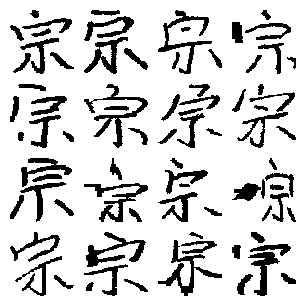 宗宗宗宗
宗宗宗宗
宗宗宗宗
宗宗宗宗